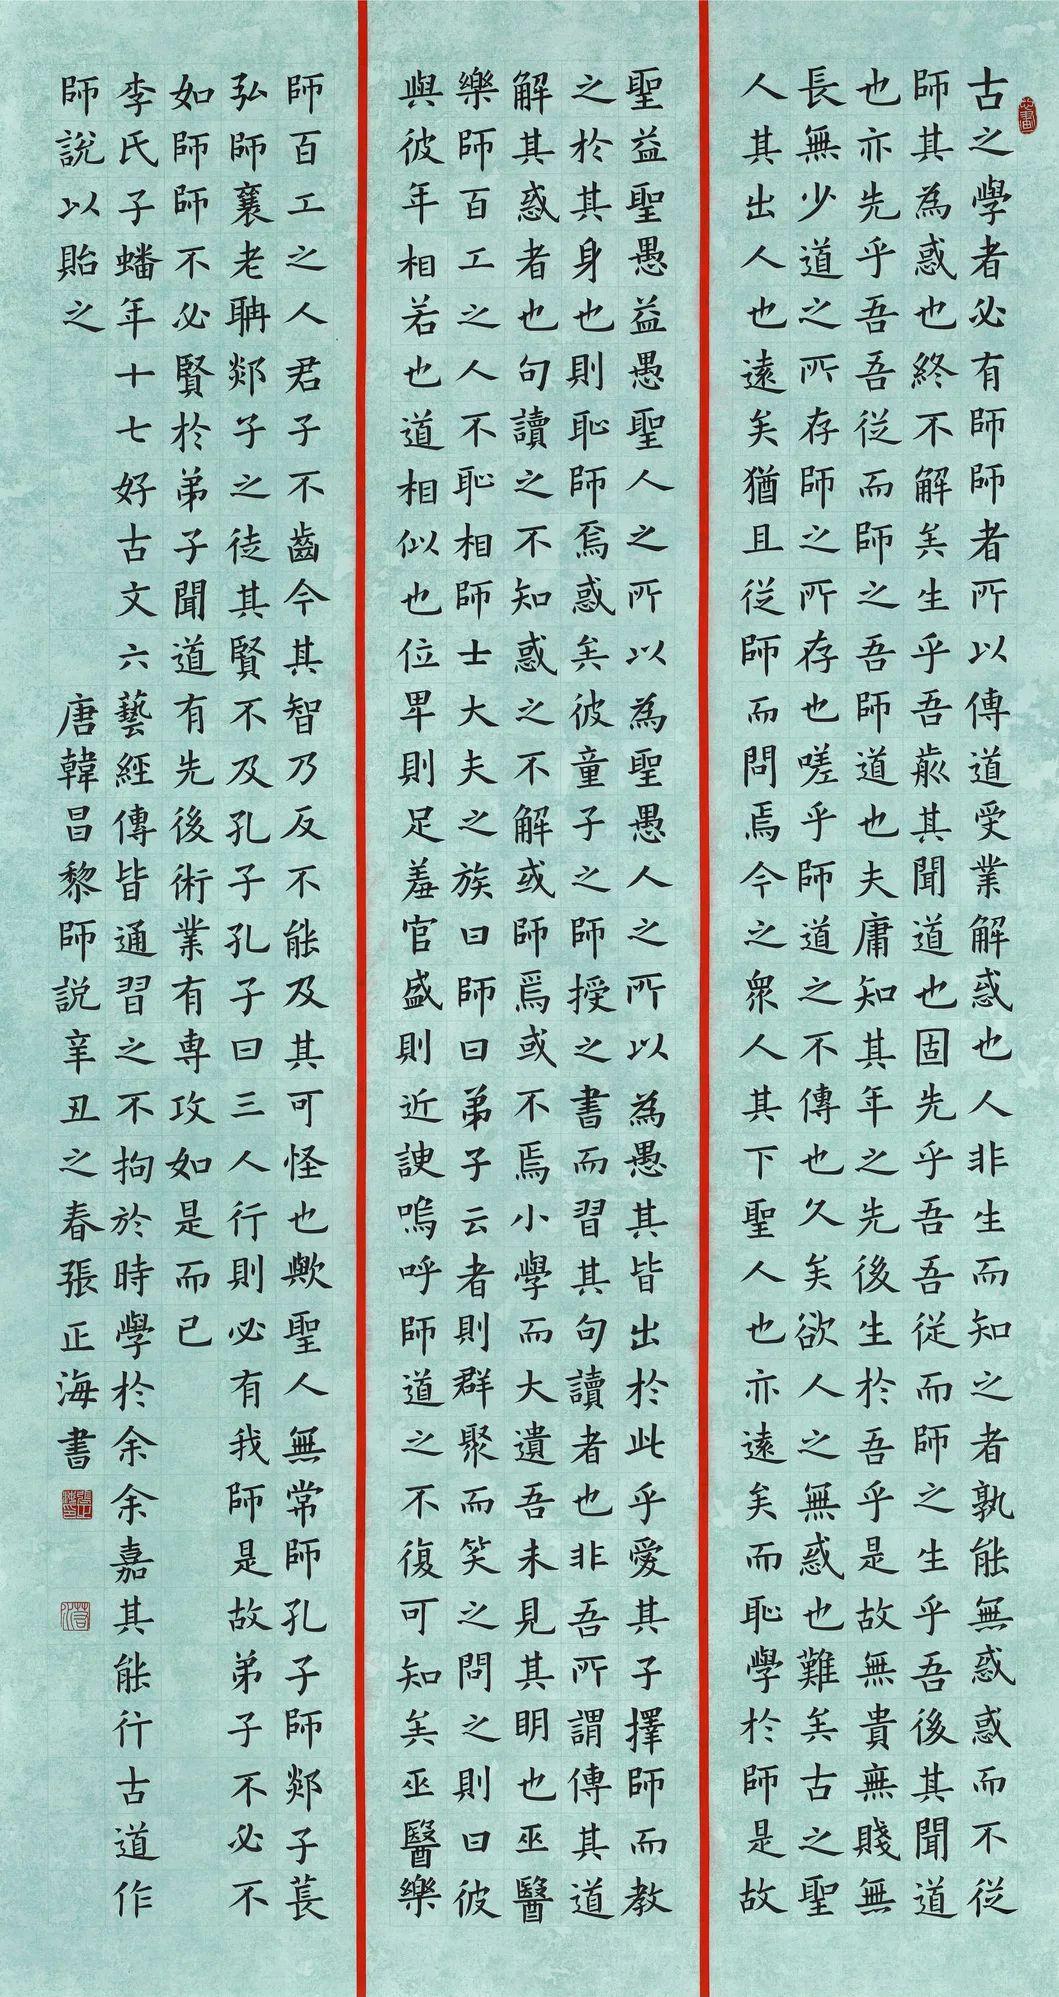 古之學者必有師師者所以傳道受業解惑也人非生而知之者孰能無惑惑而不從
師其為惑也終不解矣生乎吾歬其聞道也固先乎吾吾從而師之生乎吾後其聞道
也亦先乎吾吾從而師之吾師道也夫庸知其年之先後生於吾乎是故無貴無賤無
長無少道之所存師之所存也嗟乎師道之不傳也久矣欲人之無惑也難矣古之聖
人其出人也遠矣猶且從師而問焉今之眾人其下聖人也亦遠矣而恥學於師是故
聖益聖愚益愚聖人之所以為聖愚人之所以為愚其皆出於此乎愛其子擇師而教
之於其身也則恥師焉惑矣彼童子之師授之書而習其句讀者也非吾所謂傳其道
解其惑者也句讀之不知惑之不解或師焉或不焉小學而大遺吾未見其明也巫醫
樂師百工之人不恥相師士大夫之族曰師曰弟子云者則群聚而笑之問之則曰彼
與彼年相若也道相似也位卑則足羞官盛則近諛嗚呼師道之不復可知矣巫醫樂
師百工之人君子不齒今其智乃反不能及其可怪也歟聖人無常師孔子師郯子萇
弘師襄老聃郯子之徒其賢不及孔子孔子曰三人行則必有我師是故弟子不必不
如師師不必賢於弟子聞道有先後術業有專攻如是而已
李氏子蟠年十七好古文六藝經傳皆通習之不拘於時學於余余嘉其能行古道作
師說以貽之
唐韓昌黎師說辛丑之春張正海書